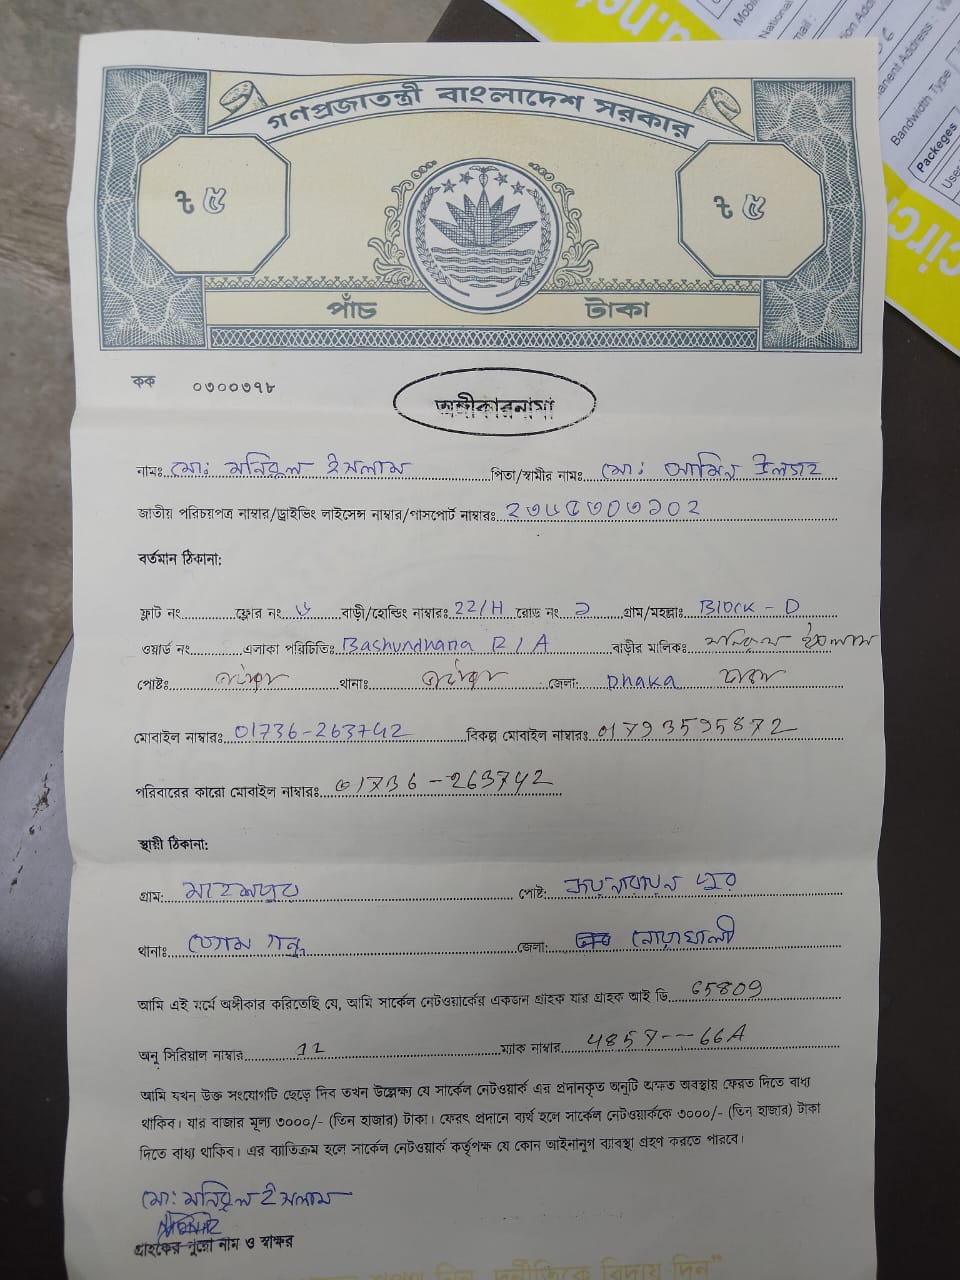 গণপ্রজাতন্ত্রী বাংলাদেশ সরকার
৳ ৫ ৳ ৫
পাঁচ টাকা
কক ০৩০০৩৭৮
অঙ্গীকারনামা
নামঃ মোঃ মনিরুল ইসলাম পিতা/স্বামীর নামঃ মোঃ আমিন
জাতীয় পরিচয়পত্র নাম্বার/ড্রাইভিং লাইসেন্স নাম্বার/পাসপোর্ট নাম্বারঃ
বর্তমান ঠিকানা:
ফ্লাট নং ফ্লোর নং ৬ বাড়ী/হোল্ডিং নাম্বারঃ 22/H রোড নং ১ গ্রাম/মহল্লাঃ Block - D
ওয়ার্ড নং এলাকা পরিচিতিঃ Bashundhara R/A বাড়ীর মালিকঃ মনিরুল ইসলাম
পোষ্টঃ থানাঃ জেলা: Dhaka ঢাকা
মোবাইল নাম্বারঃ 01736-263742 বিকল্প মোবাইল নাম্বারঃ 01793595872
পরিবারের কারো মোবাইল নাম্বারঃ 01736-263742
স্থায়ী ঠিকানা:
গ্রাম: মহেশপুর পোষ্ট:
থানাঃ জেলা: নোয়াখালী
আমি এই মর্মে অঙ্গীকার করিতেছি যে, আমি সার্কেল নেটওয়ার্কের একজন গ্রাহক যার গ্রাহক আই ডি 65809
অনু সিরিয়াল নাম্বার 12 ম্যাক নাম্বার 4857--66A
আমি যখন উক্ত সংযোগটি ছেড়ে দিব তখন উল্লেক্ষ্য যে সার্কেল নেটওয়ার্ক এর প্রদানকৃত অনুটি অক্ষত অবস্থায় ফেরত দিতে বাধ্য
থাকিব। যার বাজার মূল্য ৩০০০/- (তিন হাজার) টাকা। ফেরৎ প্রদানে ব্যর্থ হলে সার্কেল নেটওয়ার্ককে ৩০০০/- (তিন হাজার) টাকা
দিতে বাধ্য থাকিব। এর ব্যতিক্রম হলে সার্কেল নেটওয়ার্ক কর্তৃপক্ষ যে কোন আইনানুগ ব্যবস্থা গ্রহণ করতে পারবে।
মোঃ মনিরুল ইসলাম
গ্রাহকের পুরো নাম ও স্বাক্ষর
দুর্নীতিকে বিদায় দিন"
Bandwidth Type
Packeges